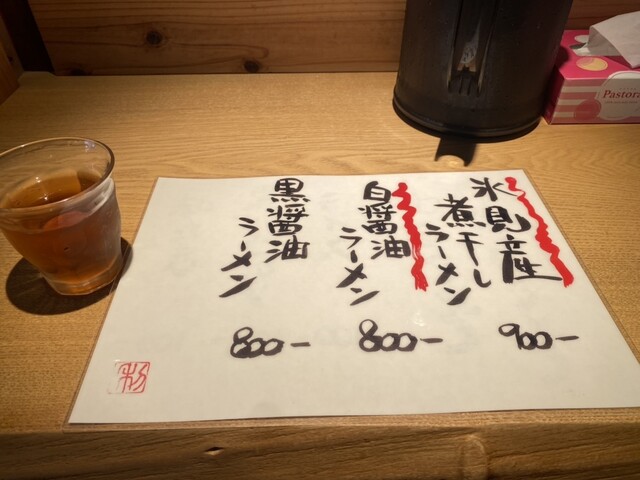 氷見産
煮干し
ラーメン
900-
白醤油
ラーメン
800-
黒醤油
ラーメン
800-
Pastora